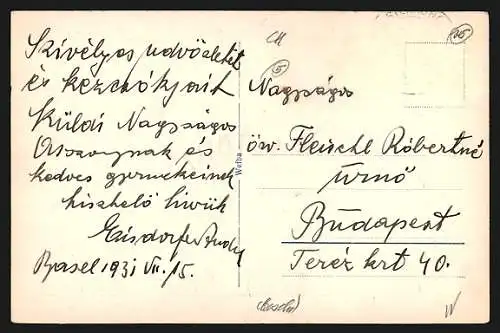 Szívélyes üdvözletét
és kézcsókjait
Küldi Nagyságos
Asszonynak és
kedves gyermekeinek
tisztelő hívük
Basel 1931 VII. 15.
Nagyságos
öw. Fleischl Róbertné
úrnő
Budapest
Teréz krt 40.